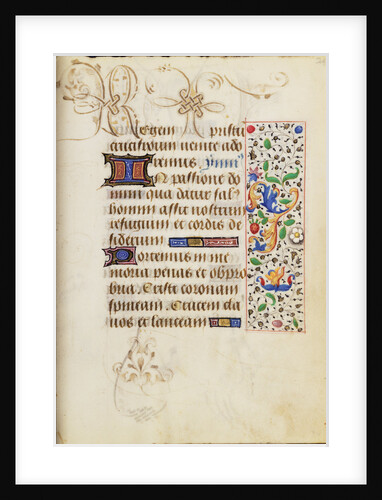 Regem pristu
crucifixum venite ado
remus. ymni
In passione do
mini qua datur sal
homini assit nostrum
refugium et cordis de
siderium
Portemus in me
moria penas et oppro
bria. Criste coronam
spineam. Crucem cla
uos et lanceam